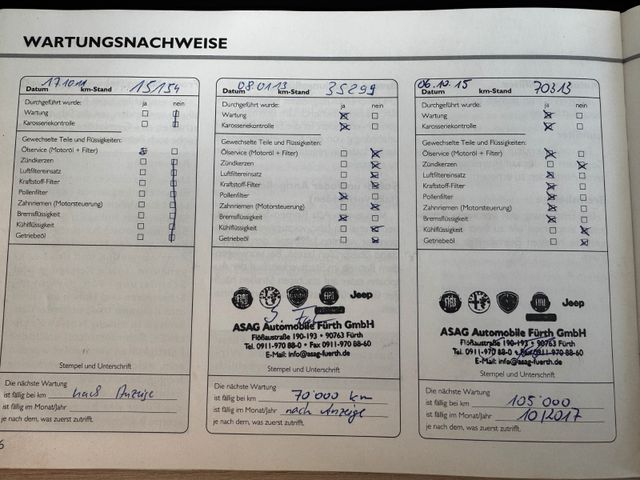 WARTUNGSNACHWEISE
Datum km-Stand 15154
Durchgeführt wurde: ja nein
Wartung
Karosseriekontrolle
Gewechselte Teile und Flüssigkeiten:
Ölservice (Motoröl + Filter)
Zündkerzen
Luftfiltereinsatz
Kraftstoff-Filter
Pollenfilter
Zahnriemen (Motorsteuerung)
Bremsflüssigkeit
Kühlflüssigkeit
Getriebeöl
Stempel und Unterschrift
Die nächste Wartung
ist fällig bei km nach Anzeige
ist fällig im Monat/Jahr
je nach dem, was zuerst zutrifft.
08.01.13 35299
Datum km-Stand
Durchgeführt wurde: ja nein
Wartung
Karosseriekontrolle
Gewechselte Teile und Flüssigkeiten:
Ölservice (Motoröl + Filter)
Zündkerzen
Luftfiltereinsatz
Kraftstoff-Filter
Pollenfilter
Zahnriemen (Motorsteuerung)
Bremsflüssigkeit
Kühlflüssigkeit
Getriebeöl
FIAT Jeep
ASAG Automobile Fürth GmbH
Flößaustraße 190-193 • 90763 Fürth
Tel. 0911-970 88-0 • Fax 0911-970 88-60
E-Mail: info@asag-fuerth.de
Stempel und Unterschrift
Die nächste Wartung
ist fällig bei km 70'000 km
ist fällig im Monat/Jahr nach Anzeige
je nach dem, was zuerst zutrifft.
06.10.15 70313
Datum km-Stand
Durchgeführt wurde: ja nein
Wartung
Karosseriekontrolle
Gewechselte Teile und Flüssigkeiten:
Ölservice (Motoröl + Filter)
Zündkerzen
Luftfiltereinsatz
Kraftstoff-Filter
Pollenfilter
Zahnriemen (Motorsteuerung)
Bremsflüssigkeit
Kühlflüssigkeit
Getriebeöl
FIAT Jeep
ASAG Automobile Fürth GmbH
Flößaustraße 190-193 • 90763 Fürth
Tel. 0911-970 88-0 • Fax 0911-970 88-60
E-Mail: info@asag-fuerth.de
Stempel und Unterschrift
Die nächste Wartung
ist fällig bei km 105'000
ist fällig im Monat/Jahr 10/2017
je nach dem, was zuerst zutrifft.
6